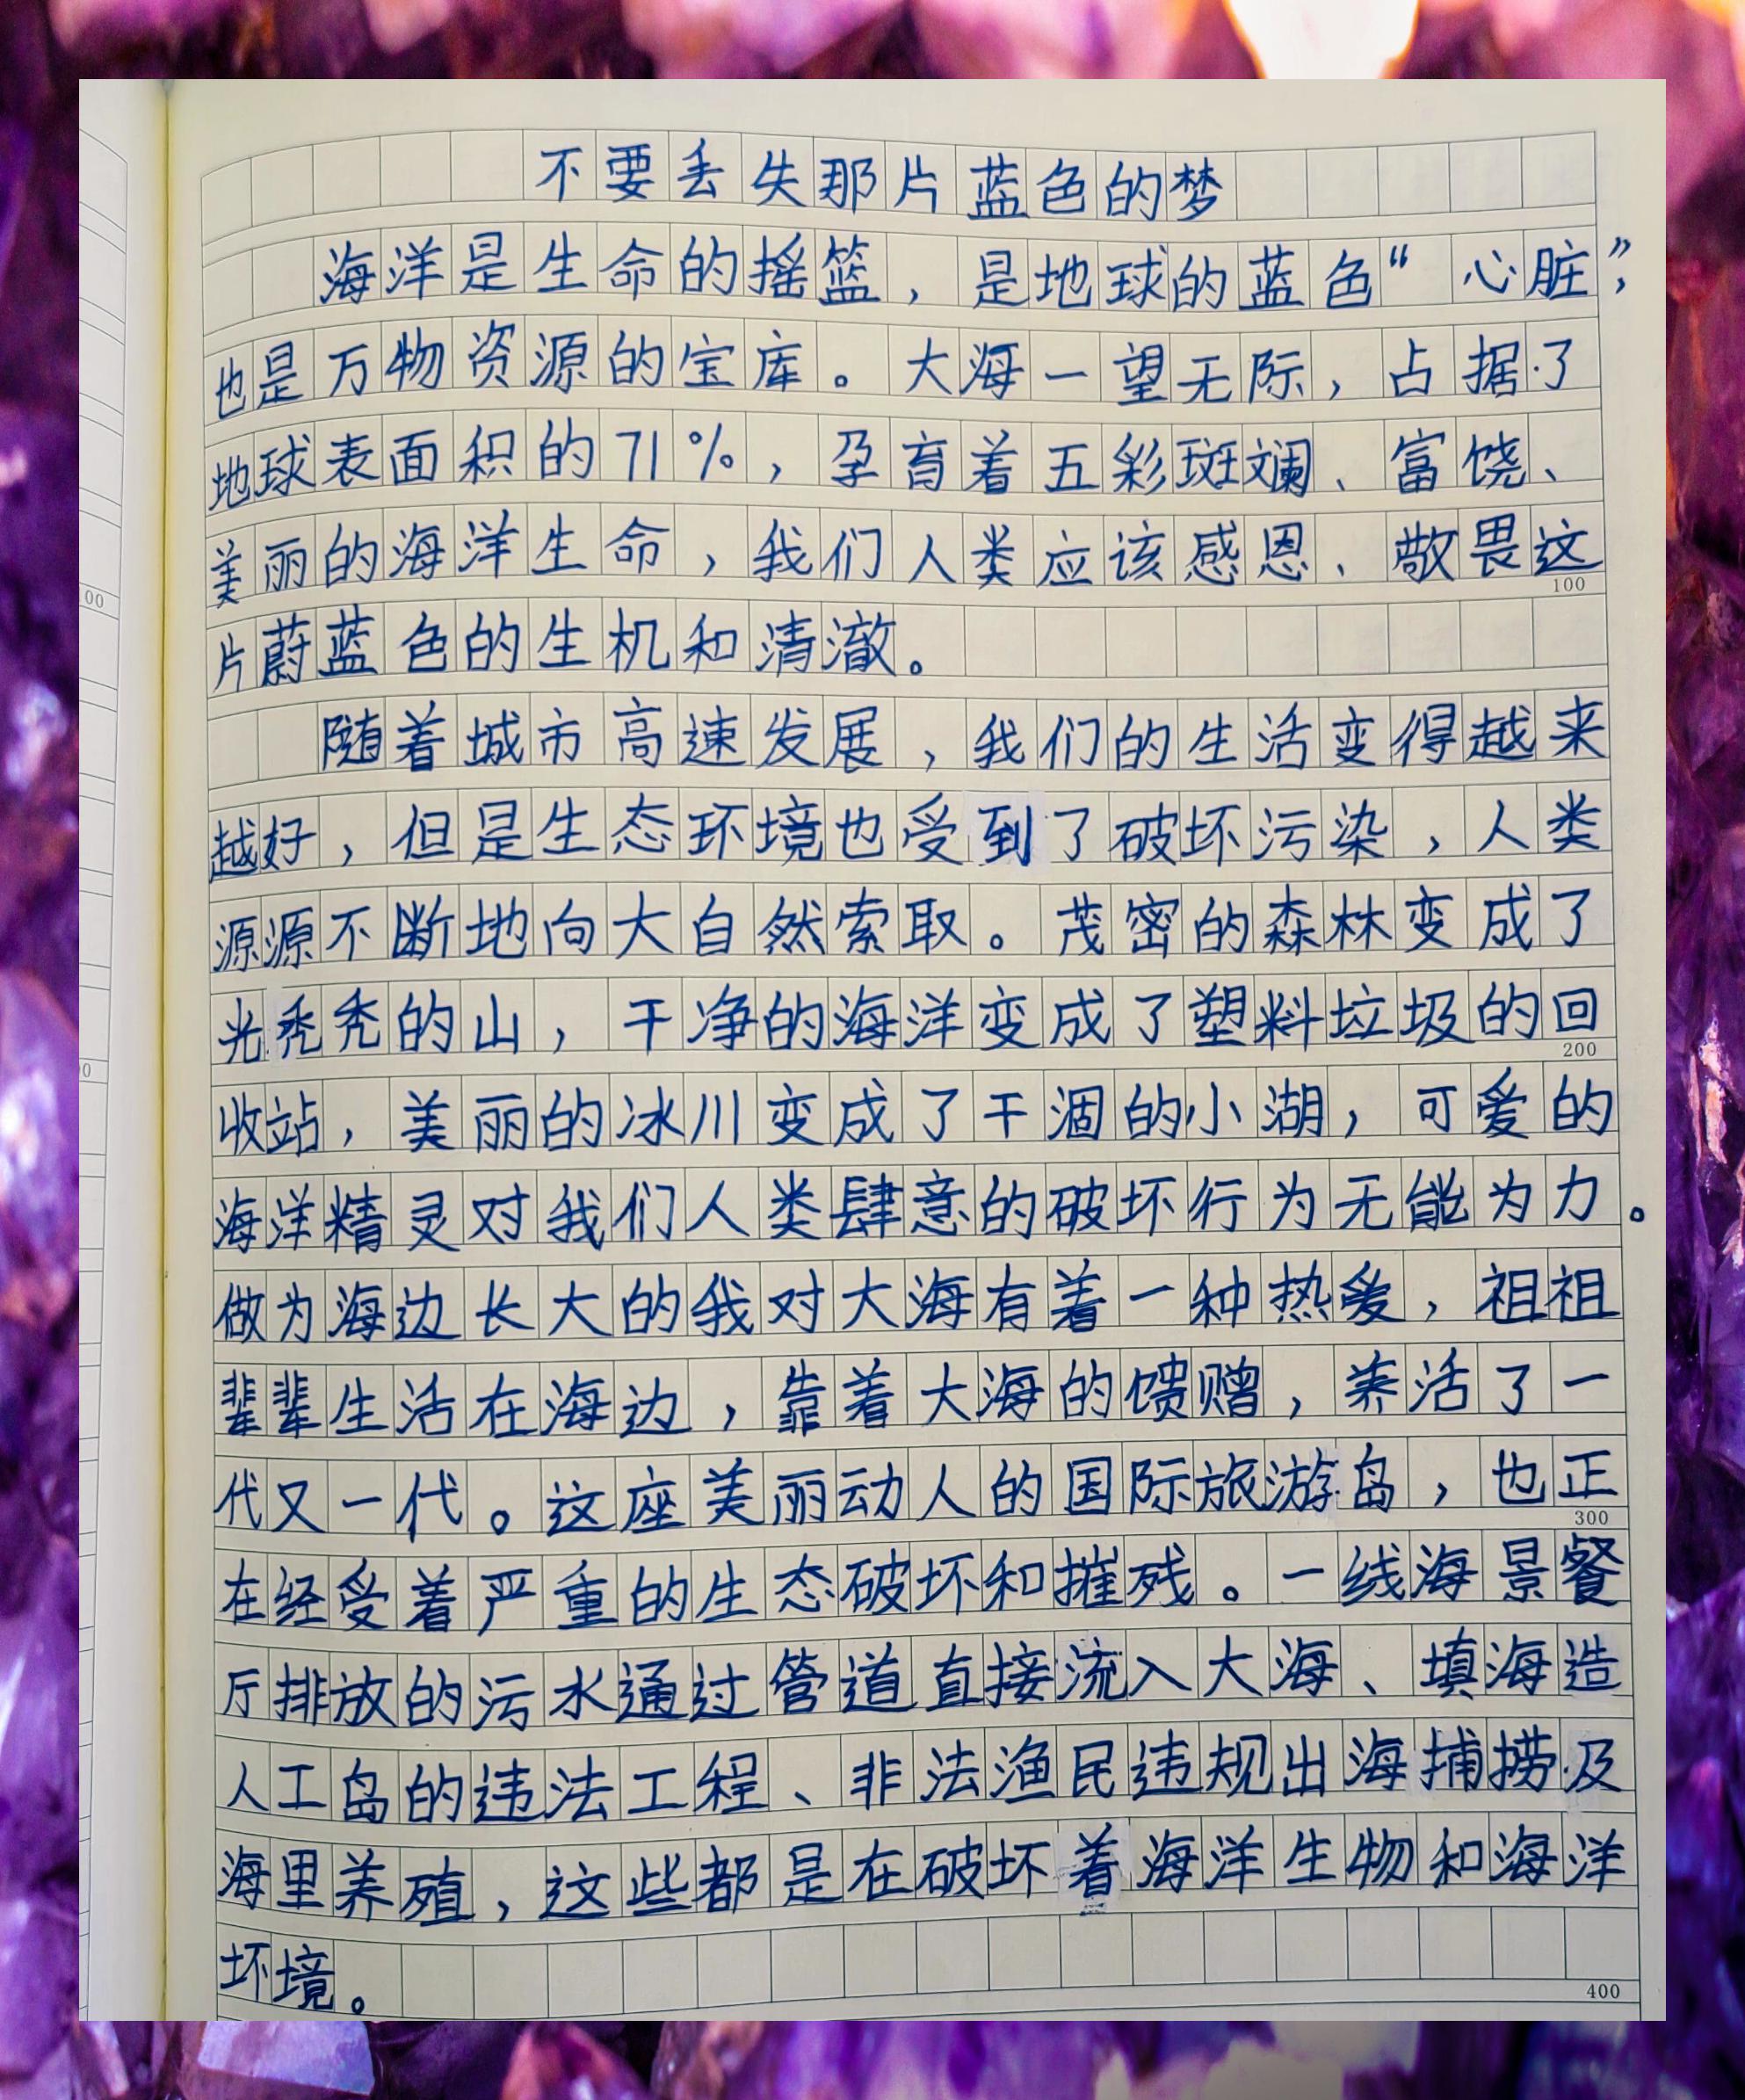 不要丢失那片蓝色的梦
海洋是生命的摇篮，是地球的蓝色“心脏”，
也是万物资源的宝库。大海一望无际，占据了
地球表面积的71%，孕育着五彩斑斓、富饶、
美丽的海洋生命，我们人类应该感恩、敬畏这
100
片蔚蓝色的生机和清澈。
随着城市高速发展，我们的生活变得越来
越好，但是生态环境也受到了破坏污染，人类
源源不断地向大自然索取。茂密的森林变成了
光秃秃的山，干净的海洋变成了塑料垃圾的回
200
收站，美丽的冰川变成了干涸的小湖，可爱的
海洋精灵对我们人类肆意的破坏行为无能为力。
做为海边长大的我对大海有着一种热爱，祖祖
辈辈生活在海边，靠着大海的馈赠，养活了一
代又一代。这座美丽动人的国际旅游岛，也正
300
在经受着严重的生态破坏和摧残。一线海景餐
厅排放的污水通过管道直接流入大海、填海造
人工岛的违法工程、非法渔民违规出海捕捞及
海里养殖，这些都是在破坏着海洋生物和海洋
环境。
400